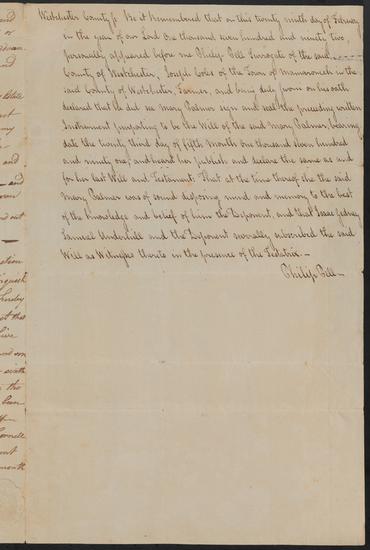 Westchester County ss. Be it Remembered that on this twenty ninth day of February
in the year of our Lord One thousand seven hundred and ninety two
personally appeared before me Philip Pell Surrogate of the said
County of Westchester, Joseph Coles of the Town of Mamaroneck in the
said County of Westchester Farmer, and being duly sworn on his oath
declared that he did see Mary Palmer sign and seal the preceding written
Instrument purporting to be the Will of the said Mary Palmer, bearing
date the twenty third day of fifth Month one thousand seven hundred
and ninety one, and heard her publish and declare the same as and
for her last Will and Testament. That at the time thereof she the said
Mary Palmer was of sound disposing mind and memory to the best
of the Knowledge and belief of him the Deponent, and that Isaac Gedney
Samuel Underhill and the Deponent severally subscribed the said
Will as Witnesses thereto in the presence of the Testatrix. —
Philip Pell —
and
my
and
and
ction
Lindly
it that
sixth
the
Cornell
month